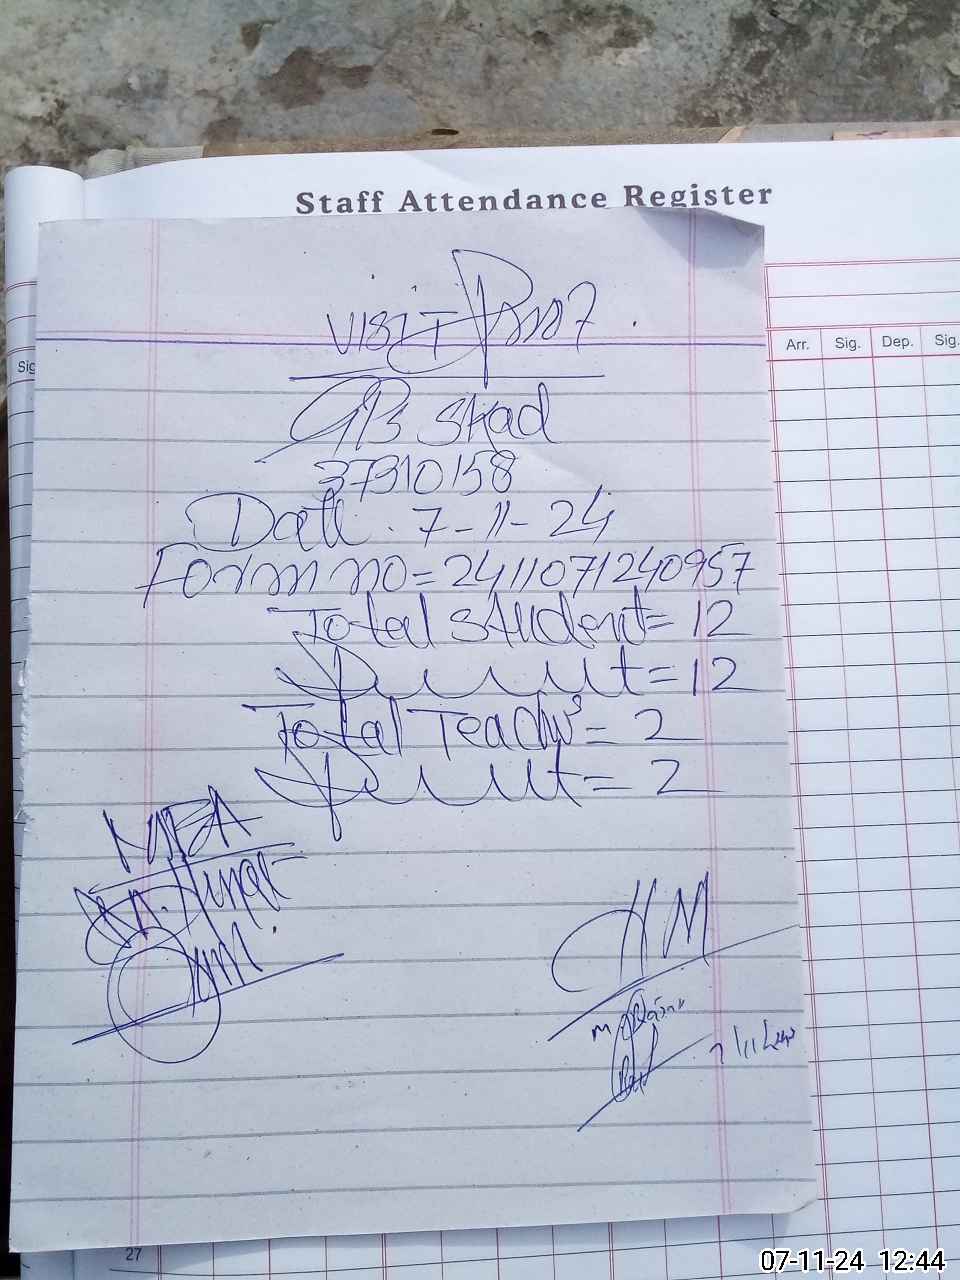 Staff Attendance Register
Arr. Sig. Dep. Sig.
Sig
VISIT
GPS Skad
37310158
Date . 7-11-24
Form no = 2411071240957
Total Student = 12
= 12
Total Teach = 2
= 2
MEA
HM
7/11/24
27
07-11-24 12:44